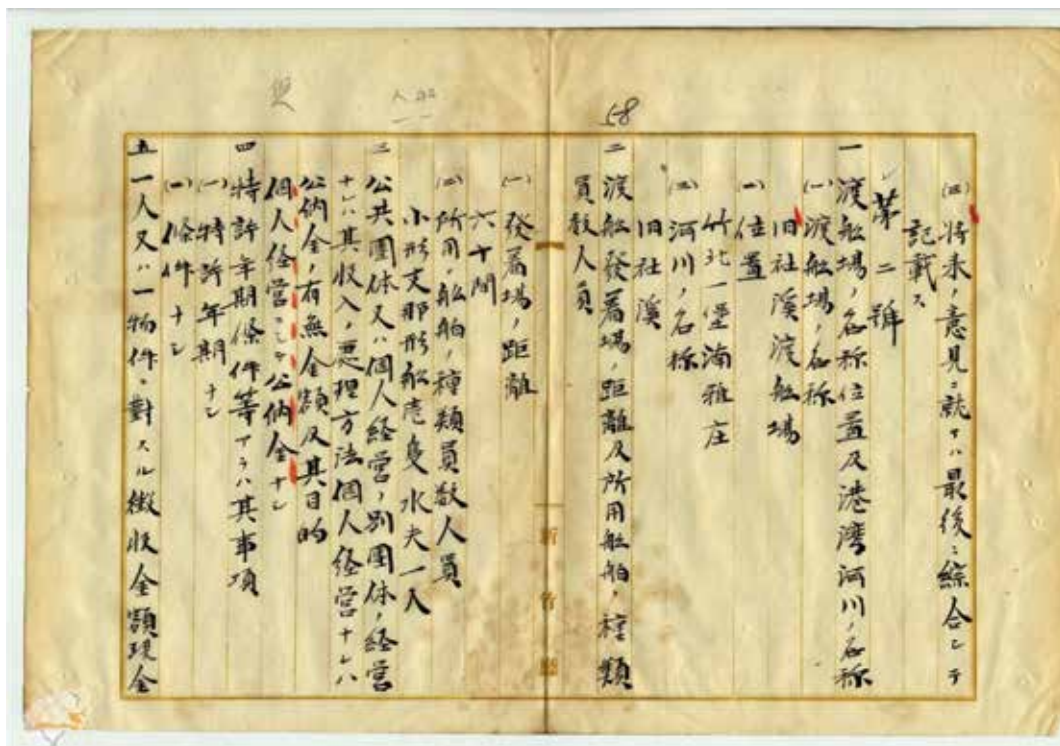 (四)将来ノ意見ニ就テハ最後ニ綜合シテ
記載ス
第二號
一 渡船場ノ名称位置及港湾河川ノ名称
(一)渡船場ノ名称
旧社溪渡船場
位置
竹北一堡湳雅庄
(二)河川ノ名称
旧社溪
二 渡船發着場ノ距離及所用船舶ノ種類
員数人員
(一)發着場ノ距離
六十間
(二)所用ノ船舶ノ種類員数人員
小形支那形船壱隻水夫一人
三 公共團体又ハ個人経営ノ別團体ノ経営
ナレハ其収入ノ処理方法個人経営ナレハ
公納金ノ有無金額及其目的
個人経営ニシテ公納金ナシ
四 特許年期條件等アラハ其事項
(一)特許年期ナシ
(一)條件ナシ
五 一人又ハ一物件ニ對スル徴収金額現金
58
新竹廳